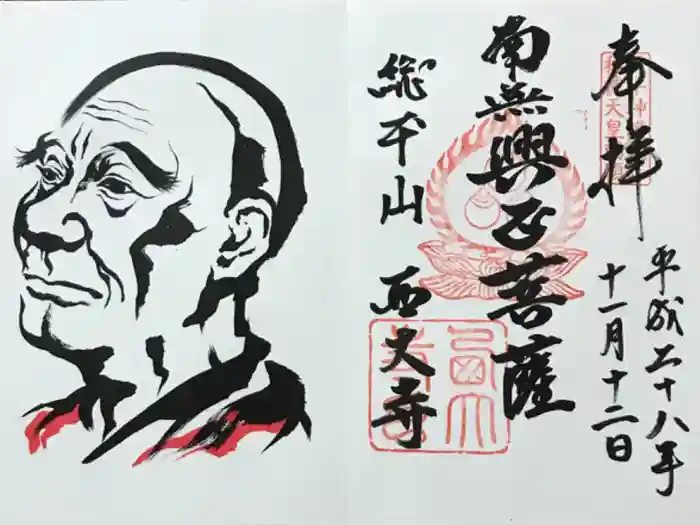 奉拝
平成二十八年
十一月十二日
南無興正菩薩
総本山 西大寺